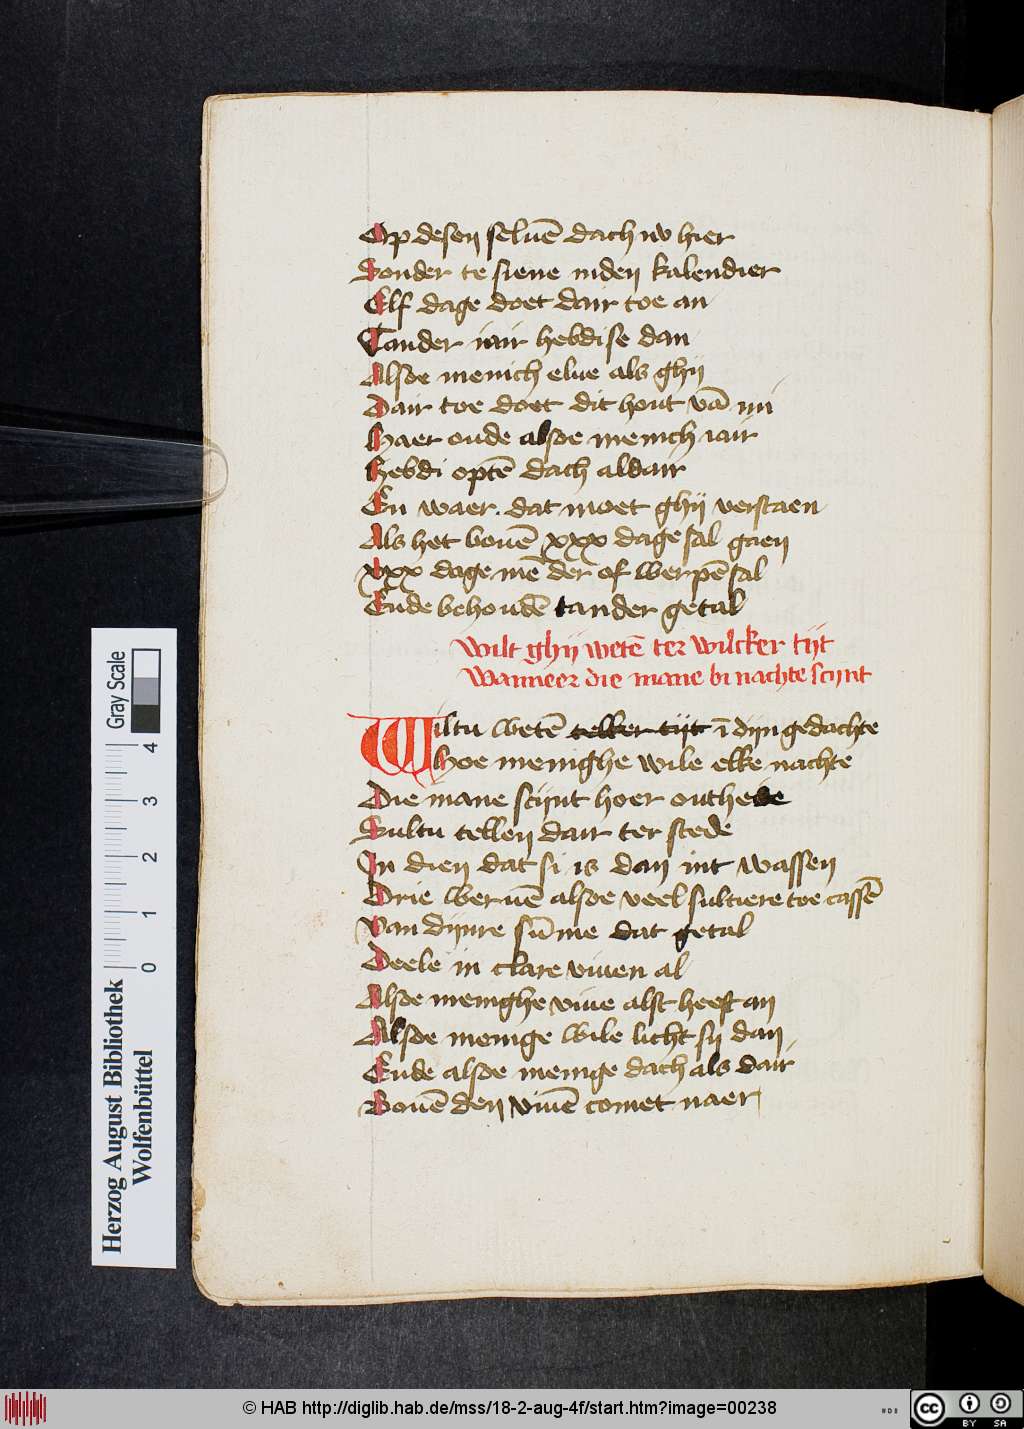 Op desen seluē dach wo hier
Sonder te siene inden kalendier
Elf dage doet dair toe an
Tander iair hebdise dan
Alsoe menich elue als ghij
Dair toe doet dit hout vā mi
Haer oude alsoe menich iair
Hebdi optē dach aldair
En waer. dat moet ghij verstaen
Als het bouē xxx dage sal gaen
xxx dage mē der of werpē sal
Ende behoudē tander getal
Wilt ghij wetē ter wilcker tijt
Wanneer die mane bi nachte scijnt
Wiltu wetē telker tijt ī dijn gedachte
Hoe menighe wile elke nachte
Die mane scijnt hoer outhede
Sultu tellen dair ter stede
In dien dat si is dan int wassen
Drie weruē alsoe veel sultiere toe cassē
Van dijnre sūme dat getal
Deele in clare viuen al
Alsoe menighe viue alst heeft an
Alsoe menige wile licht sij dan
Ende alsoe menige dach als dair
Bouē den viuē comet naer
Herzog August Bibliothek
Wolfenbüttel
Gray Scale
0 1 2 3 4
© HAB http://diglib.hab.de/mss/18-2-aug-4f/start.htm?image=00238
cc BY SA